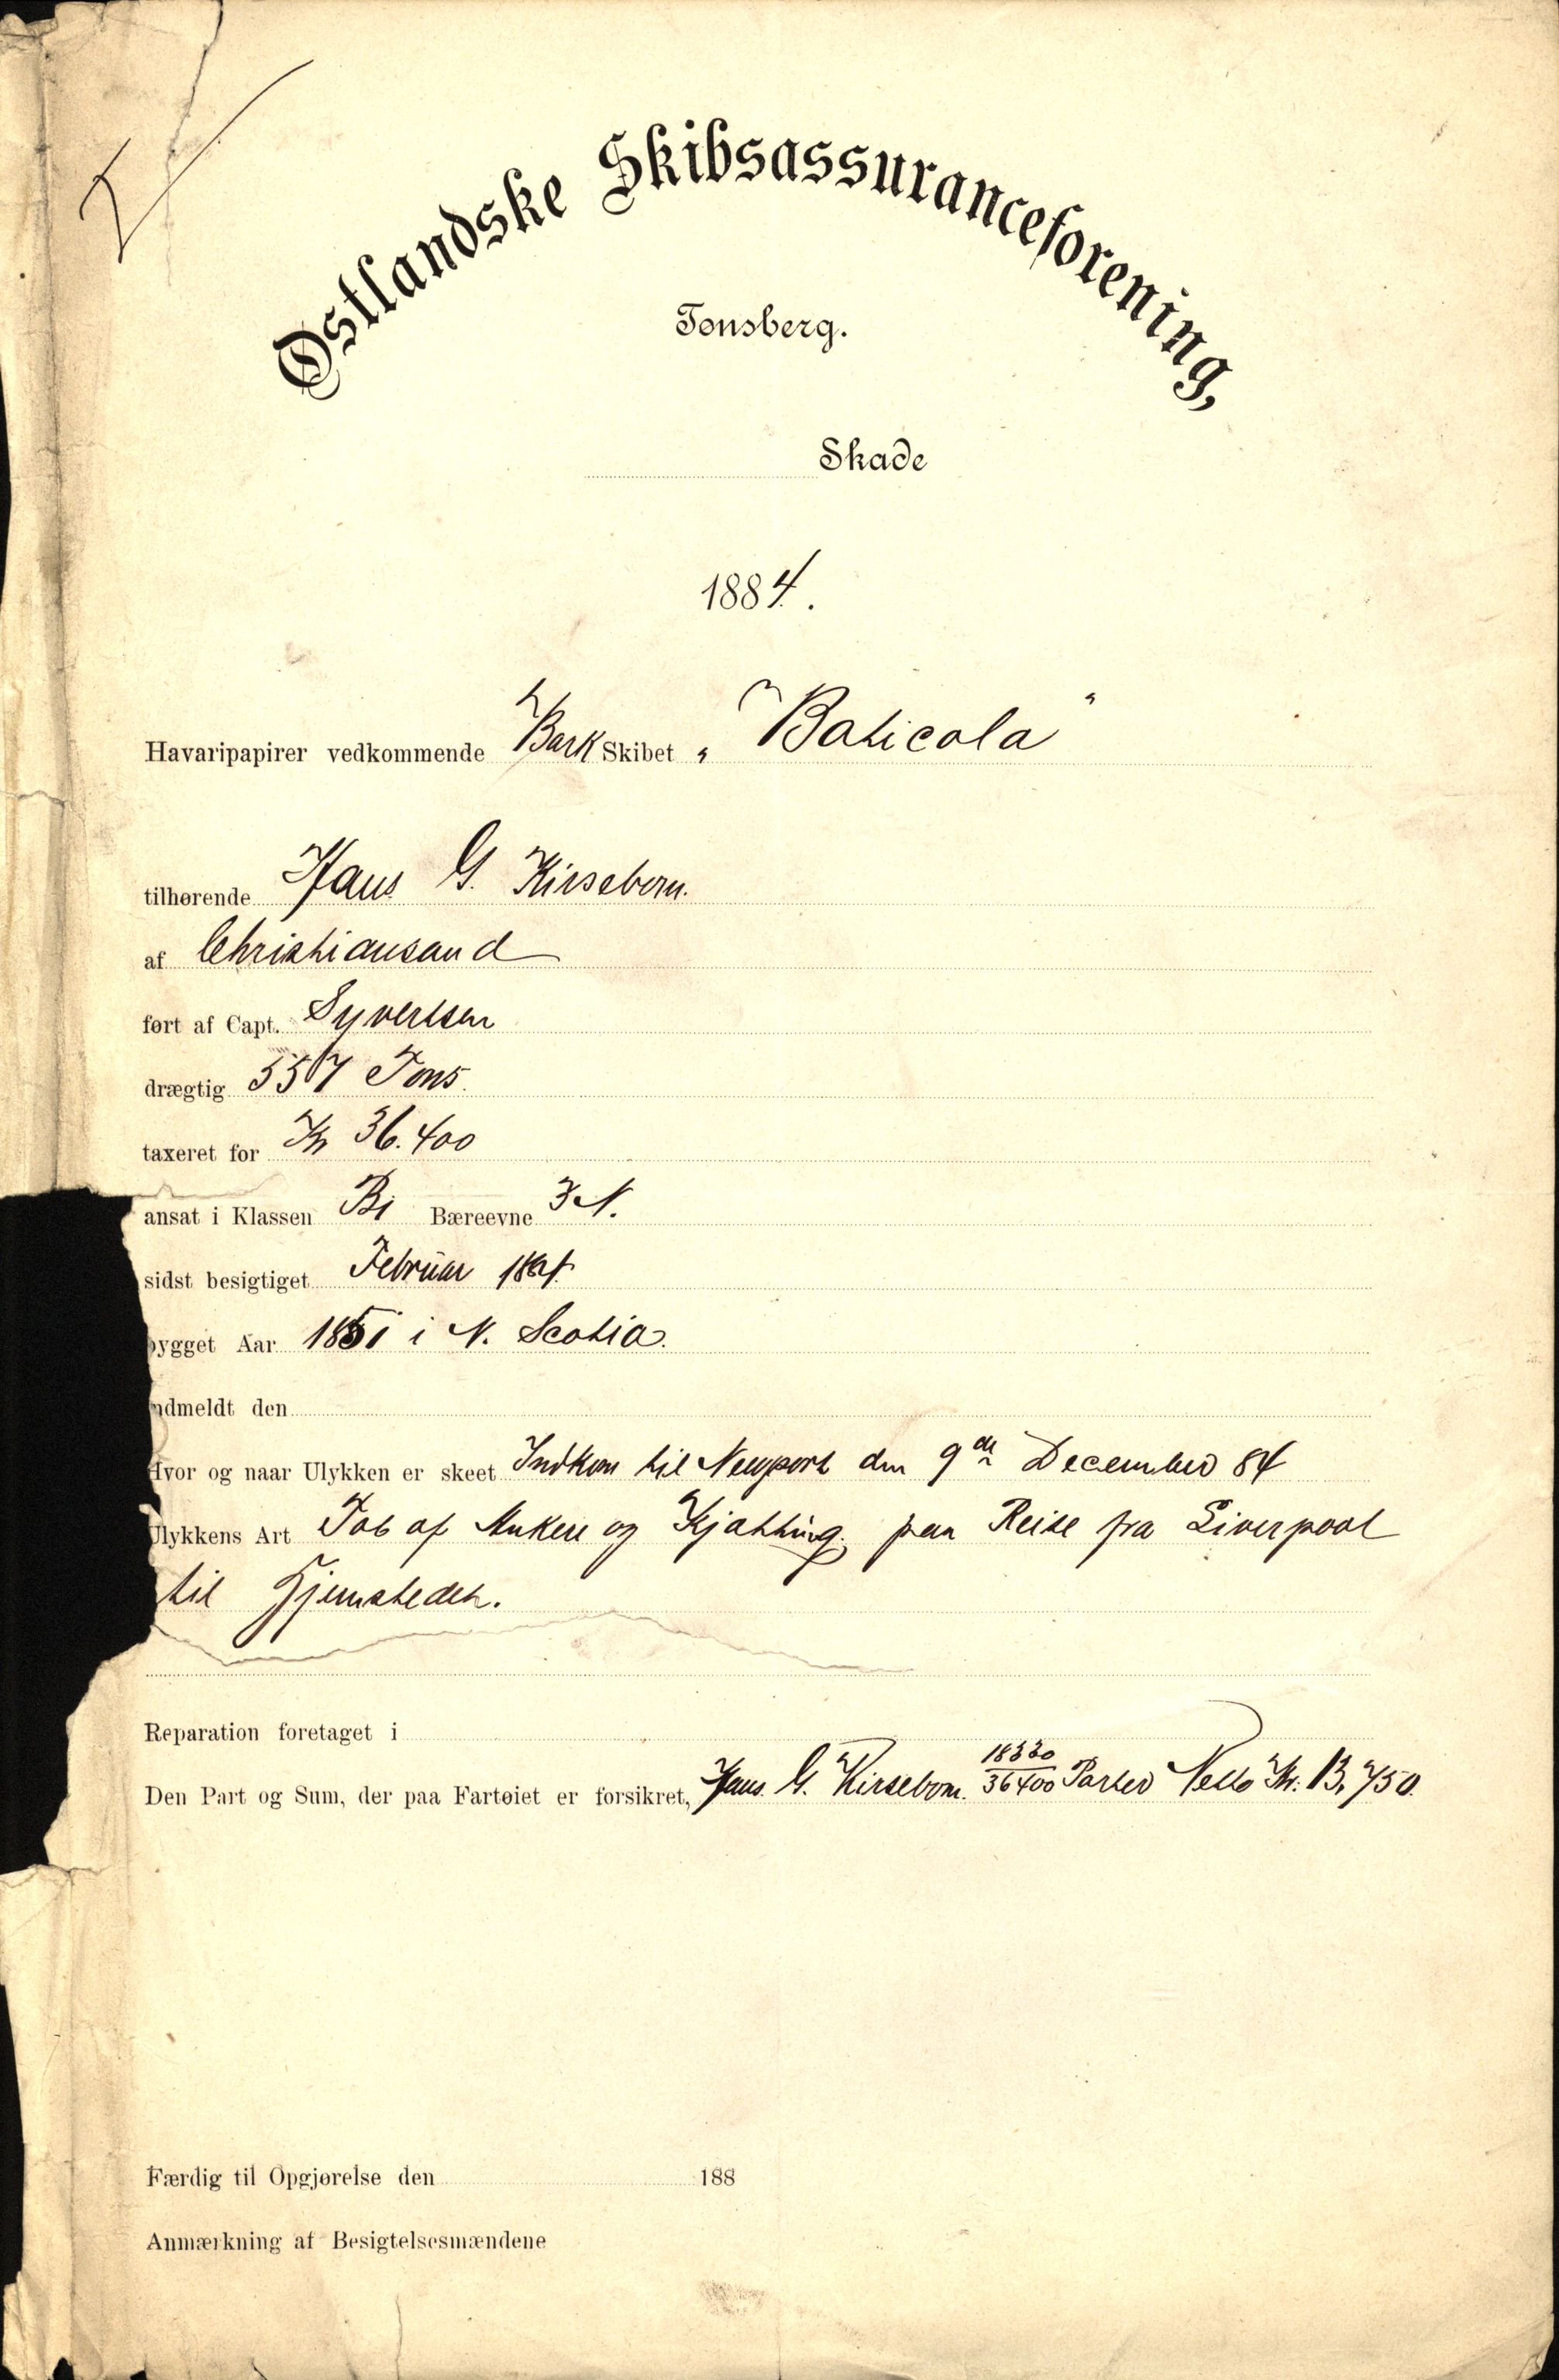 Østlandske Skibsassuranceforening,
Tønsberg.
Skade
1884.
Havaripapirer vedkommende Bark Skibet „ "Baticola"
tilhørende Hans G. Kirsebom.
af Christiansand
ført af Capt. Syvertsen
drægtig 557 Tons.
taxeret for Kr 36.400
ansat i Klassen B1 Bæreevne 3 N.
sidst besigtiget Februar 1884
bygget Aar 1851 i N. Scotia.
ndmeldt den
Hvor og naar Ulykken er skeet Indkom til Newport den 9de December 84
Ulykkens Art Tab af Anker og Kjætting paa Reise fra Liverpool
til Hjemstedet.
Reparation foretaget i
Den Part og Sum, der paa Fartøiet er forsikret, Hans G. Kirsebom. 18330/36400 Parter Netto Kr. 13,750.
Færdig til Opgjørelse den 188
Anmærkning af Besigtelsesmændene